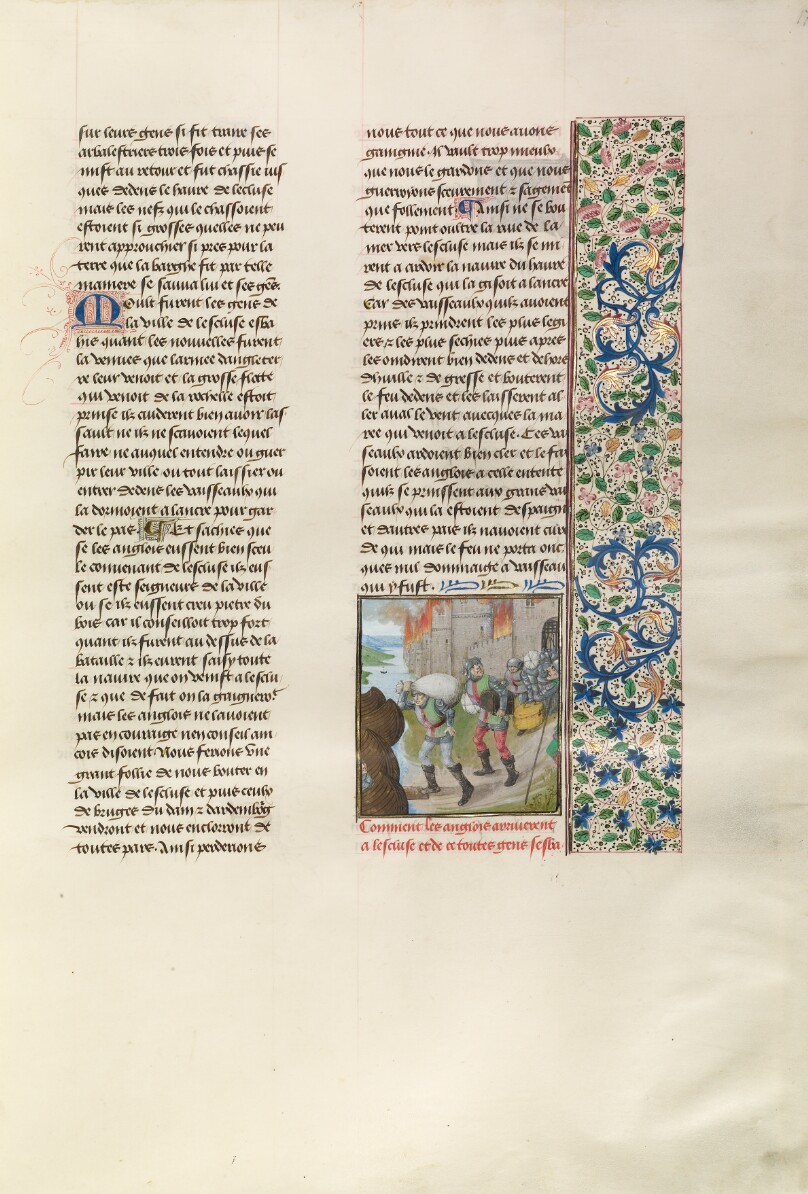 sur leurs gens si fit traire ses
arbalestriers trois fois et puis se
mist au retour et fut chassie ius
ques dedens le haure de lescluse
mais les nefz qui le chassoient
estoient si grosses quelles ne peu
rent approuchier si pres pour la
terre que la bargne fit par telle
maniere se sauua lui et ses gens.
Moult furent les gens de
la ville de lescluse esba
his quant les nouuelles furent
la venues que larmee dangleter
re leur venoit et la grosse flotte
qui venoit de la rochelle estoit
prinse ilz cuiderent bien auoir las
sault ne ilz ne scauoient lequel
faire ne auquel entendre ou guer
pir leur ville ou tout laissier ou
entrer dedens les vaisseaulx qui
la dormoient a lancre pour gar
der le pas. Et sachies que
se les anglois eussent bien sceu
le conuenant de lescluse ilz eus
sent este seigneurs de la ville
ou se ilz eussent creu pietre du
bois car il conseilloit trop fort
quant ilz furent au dessus de la
bataille et ilz eurent saisy toute
la nauire que on venist a lesclu
se et que de fait on la gaigneroit
mais les anglois ne lauoient
pas en courage nen conseil ain
cois disoient Nous ferions vne
grant follie de nous bouter en
la ville de lescluse et puis ceulx
de bruges du dam et dardembourg
vendront et nous enclorront de
toutes pars. Ainsi perderions
nous tout ce que nous auons
gaignie. Il vault trop mieulx
que nous le gardons et que nous
guerroyons seurement et sagement
que follement. Ainsi ne se bou
terent point oultre la riue de la
mer vers lescluse mais ilz se mi
rent a ardoir la nauire du haure
de lescluse qui la gisoit a lancre
Car des vaisseaulx quilz auoient
prins ilz prindrent les plus legi
ers et les plus seches puis apres
les oindirent bien dedens et dehors
dhuille et de gresse et bouterent
le feu dedens et les laisserent al
ler aual le vent auecques la ma
ree qui venoit a lescluse. Ces va
seaulx ardoient bien cler et le fai
soient les anglois a celle entente
quilz se prinssent aux grans vai
seaulx qui la estoient despaigne
et dautres pais ilz nauoient cure
de qui mais le feu ne porta onc
ques nul dommaige a vaisseau
qui y fust.
Comment les anglois arriuerent
a lescluse et de ce toutes gens sesba